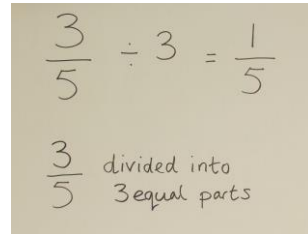 3/5 ÷ 3 = 1/5
3/5 divided into
3 equal parts